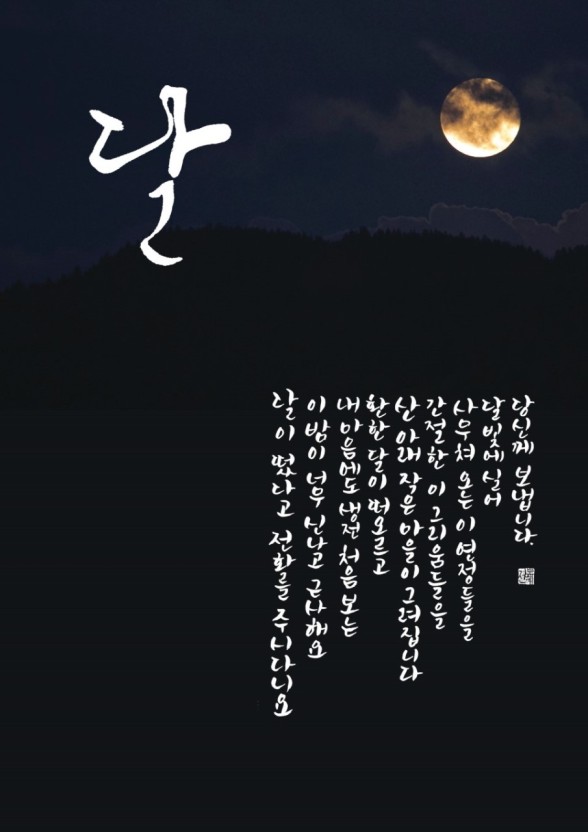 달
달이 떴다고 전화를 주시다니요
이 밤이 너무 신나고 근사해요
내 마음에도 생전 처음 보는
환한 달이 떠오르고
산 아래 작은 마을이 그려집니다
간절한 이 그리움들을
사무쳐 오는 이 연정들을
달빛에 실어
당신께 보냅니다.